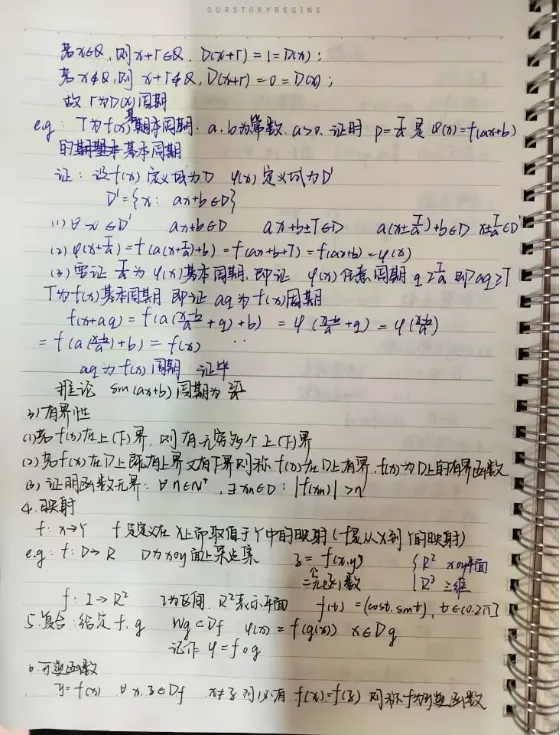 OURSTORYBEGINS
若x∈Q,则x+r∈Q,D(x+r)=1=D(x);
若x∉Q,则x+r∉Q,D(x+r)=0=D(x);
故r为D(x)周期
e.g: T为f(x)基本周期.a,b为常数.a>0.证明 P=T/a是φ(x)=f(ax+b)
的基本周期
证:设f(x)定义域为D φ(x)定义域为D'
D'={x: ax+b∈D}
(1)∀x∈D' ax+b∈D ax+b±T∈D a(x±T/a)+b∈D x±T/a∈D'
(2)φ(x+T/a)=f(a(x+T/a)+b)=f(ax+b+T)=f(ax+b)=φ(x)
(3)需证T/a为φ(x)基本周期,即证 φ(x)任意周期q≥T/a 即aq≥T
T为f(x)基本周期 即证aq为f(x)周期
f(x+aq)=f(a((x-b)/a+q)+b)=φ((x-b)/a+q)=φ((x-b)/a)
=f(a((x-b)/a)+b)=f(x)
aq为f(x)周期 证毕
推论 sin(ax+b)周期为2π/a
3)有界性
(1)若f(x)有上(下)界.则有无穷多个上(下)界
(2)若f(x)在D上既有上界又有下界则称f(x)在D上有界.f(x)为D上的有界函数
(3)证明函数无界:∀n∈N⁺,∃xn∈D:|f(xn)|>n
4.映射
f:x→Y f是定义在X上而取值于Y中的映射(f是从X到Y的映射)
e.g: f:D→R D为xoy面上某点集 z=f(x,y) {R² xoy平面
二元函数 R³ 三维
f:I→R² I为区间.R²表示平面 f(t)=(cost,sint),t∈[0,2π]
5.复合:给定f,g Wg⊂Df φ(x)=f(g(x)) x∈Dg
记作φ=f∘g
6.可逆函数
y=f(x) ∀x,z∈Df x≠z时必有f(x)≠f(z)则称f为可逆函数